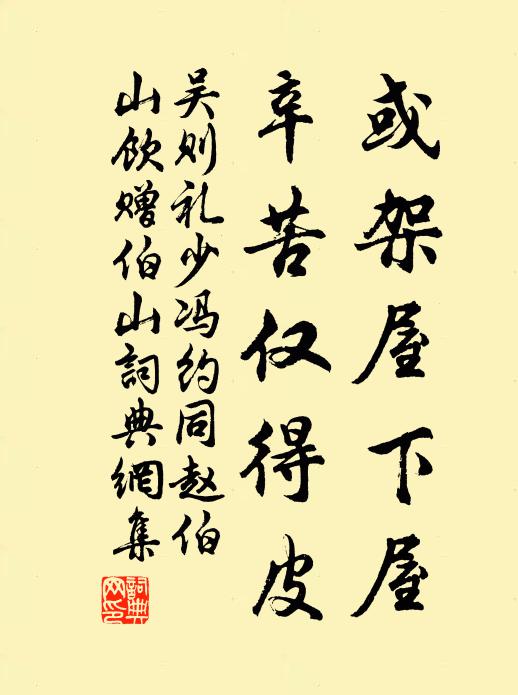 或架屋下屋
辛苦仅得皮
吴则礼少冯约同赵伯
山饮赠伯山詞典網集
詞典网印